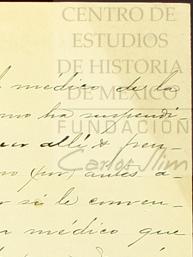 CENTRO DE
ESTUDIOS
DE HISTORIA
DE MÉXICO
FUNDACIÓN
Carlos Slim
médico de la
ha suspendi
allí &
(por) antes a-
si le conven-
médico que